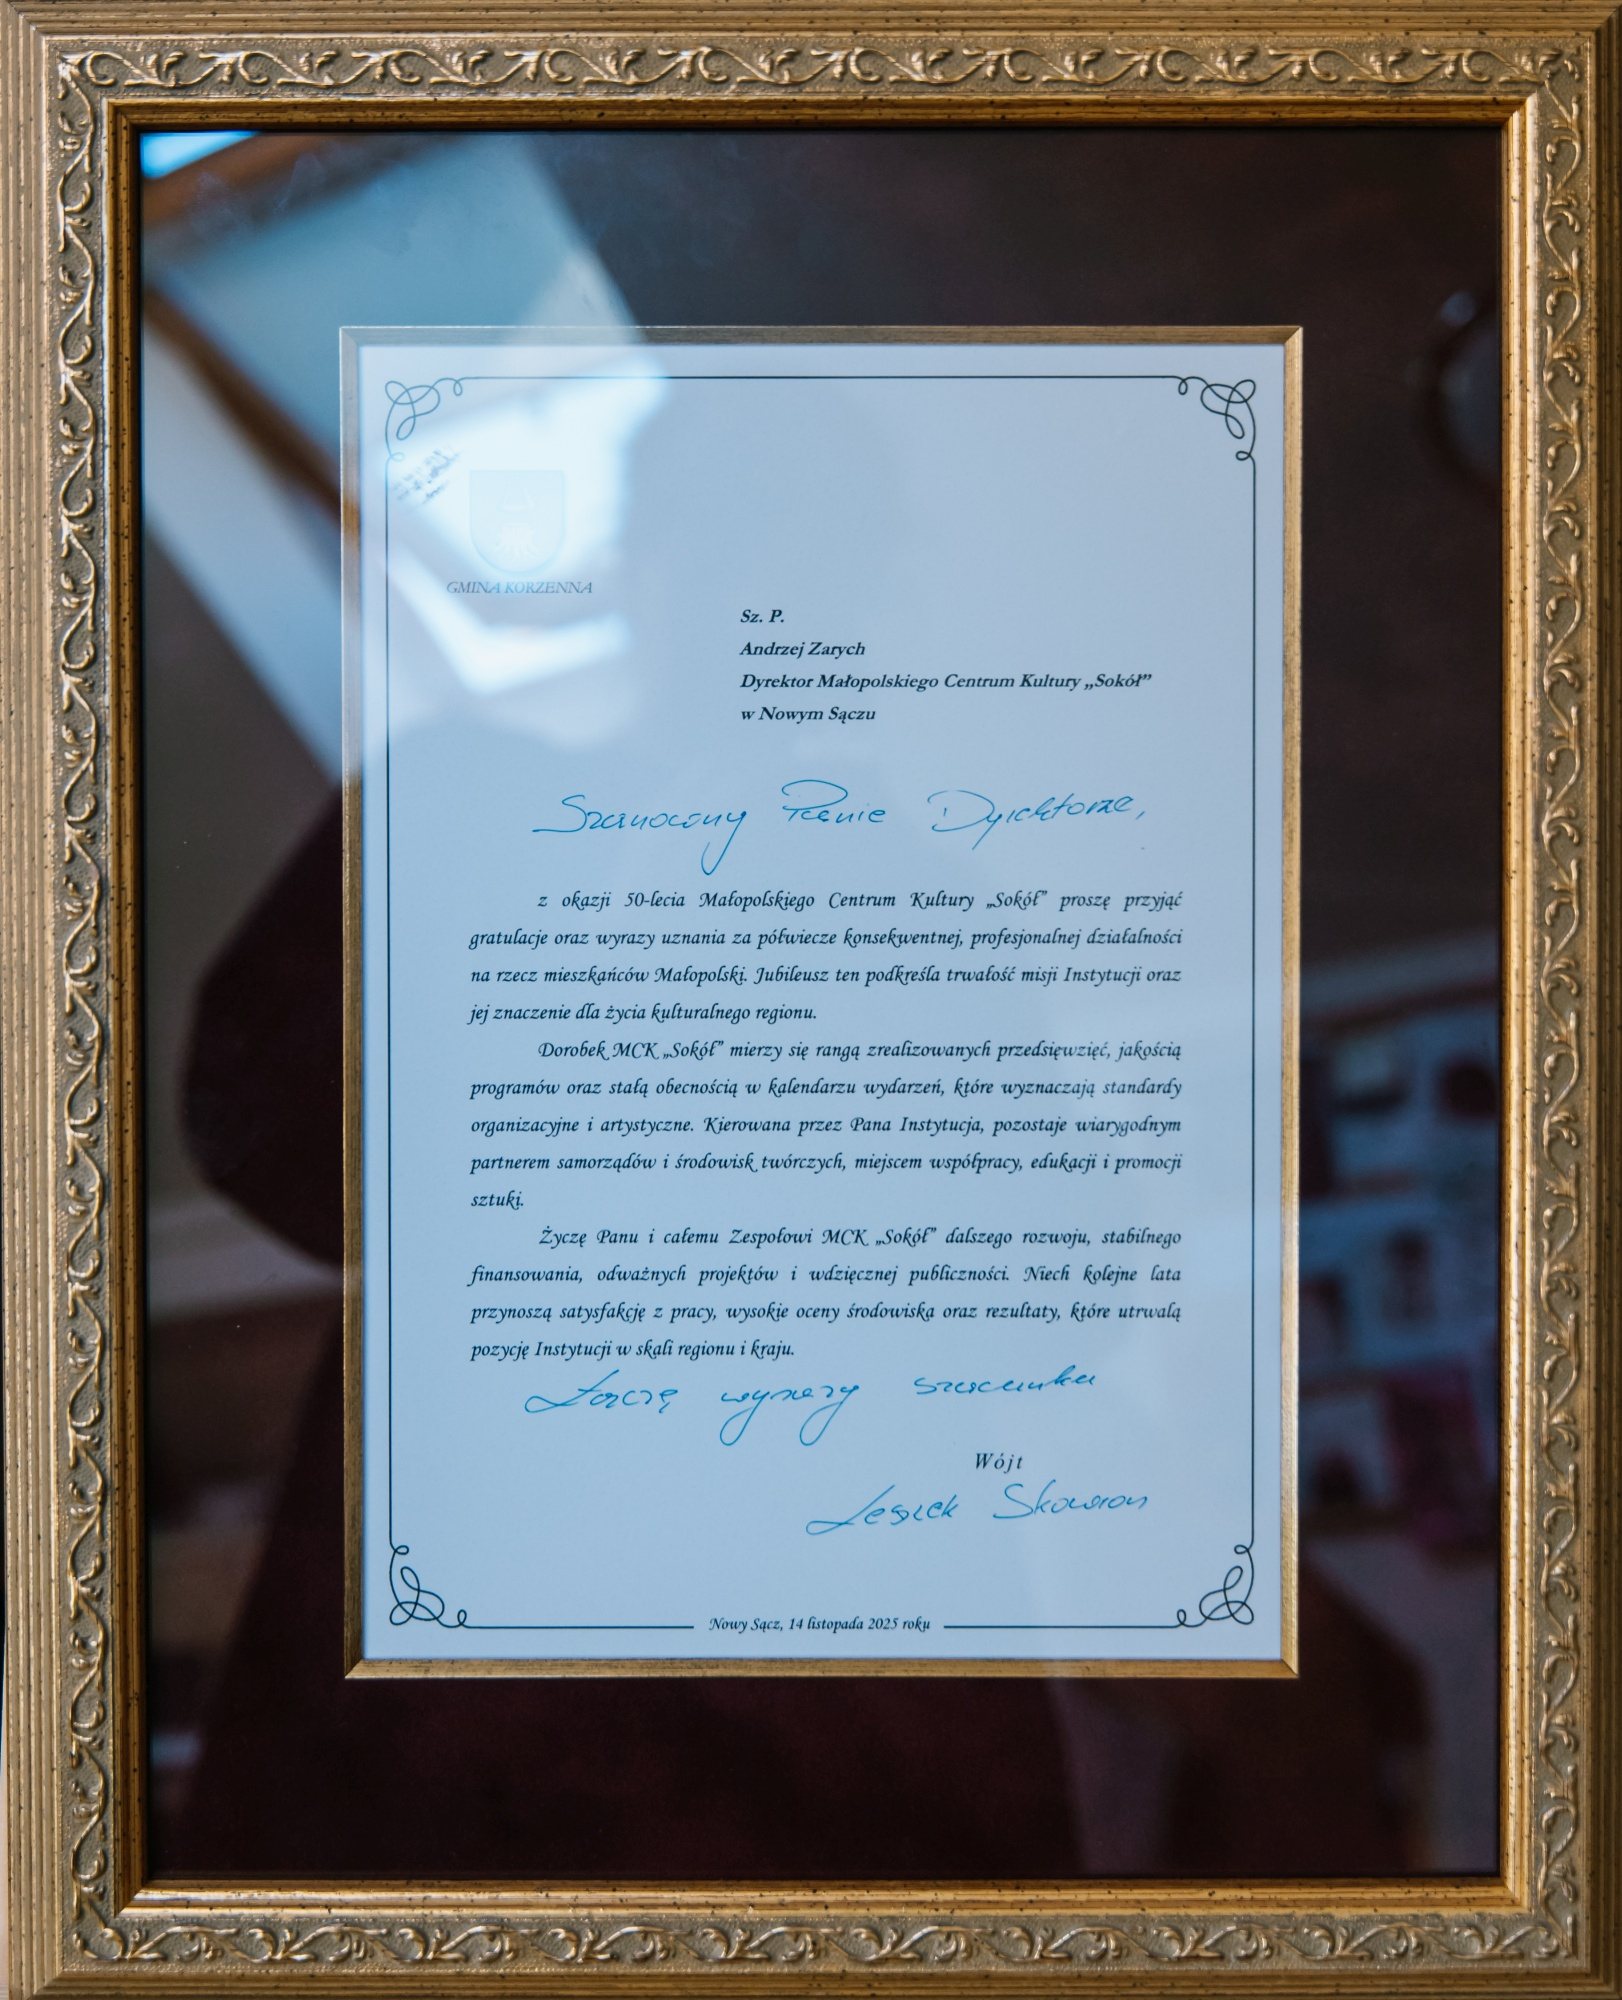 GMINA KORZENNA
Sz. P.
Andrzej Zarych
Dyrektor Małopolskiego Centrum Kultury „Sokół”
w Nowym Sączu
Szanowny Panie Dyrektorze,
z okazji 50-lecia Małopolskiego Centrum Kultury „Sokół” proszę przyjąć
gratulacje oraz wyrazy uznania za półwiecze konsekwentnej, profesjonalnej działalności
na rzecz mieszkańców Małopolski. Jubileusz ten podkreśla trwałość misji Instytucji oraz
jej znaczenie dla życia kulturalnego regionu.
Dorobek MCK „Sokół” mierzy się rangą zrealizowanych przedsięwzięć, jakością
programów oraz stałą obecnością w kalendarzu wydarzeń, które wyznaczają standardy
organizacyjne i artystyczne. Kierowana przez Pana Instytucja, pozostaje wiarygodnym
partnerem samorządów i środowisk twórczych, miejscem współpracy, edukacji i promocji
sztuki.
Życzę Panu i całemu Zespołowi MCK „Sokół” dalszego rozwoju, stabilnego
finansowania, odważnych projektów i wdzięcznej publiczności. Niech kolejne lata
przynoszą satysfakcję z pracy, wysokie oceny środowiska oraz rezultaty, które utrwalą
pozycję Instytucji w skali regionu i kraju.
Łączę wyrazy szacunku
Wójt
Leszek Skowron
Nowy Sącz, 14 listopada 2025 roku